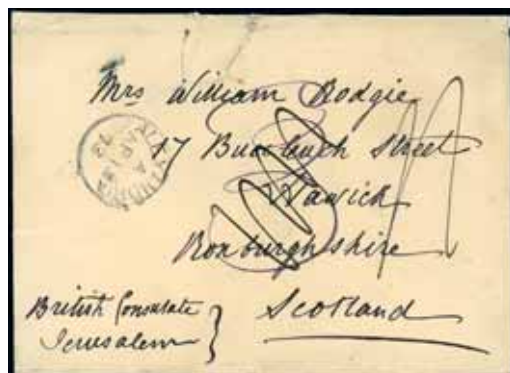 Mrs William Dodgie
17 Buccleuch Street
Hawick
Roxburghshire
Scotland
British Consulate
Jerusalem
ALEXANDRIA
A
AP
73